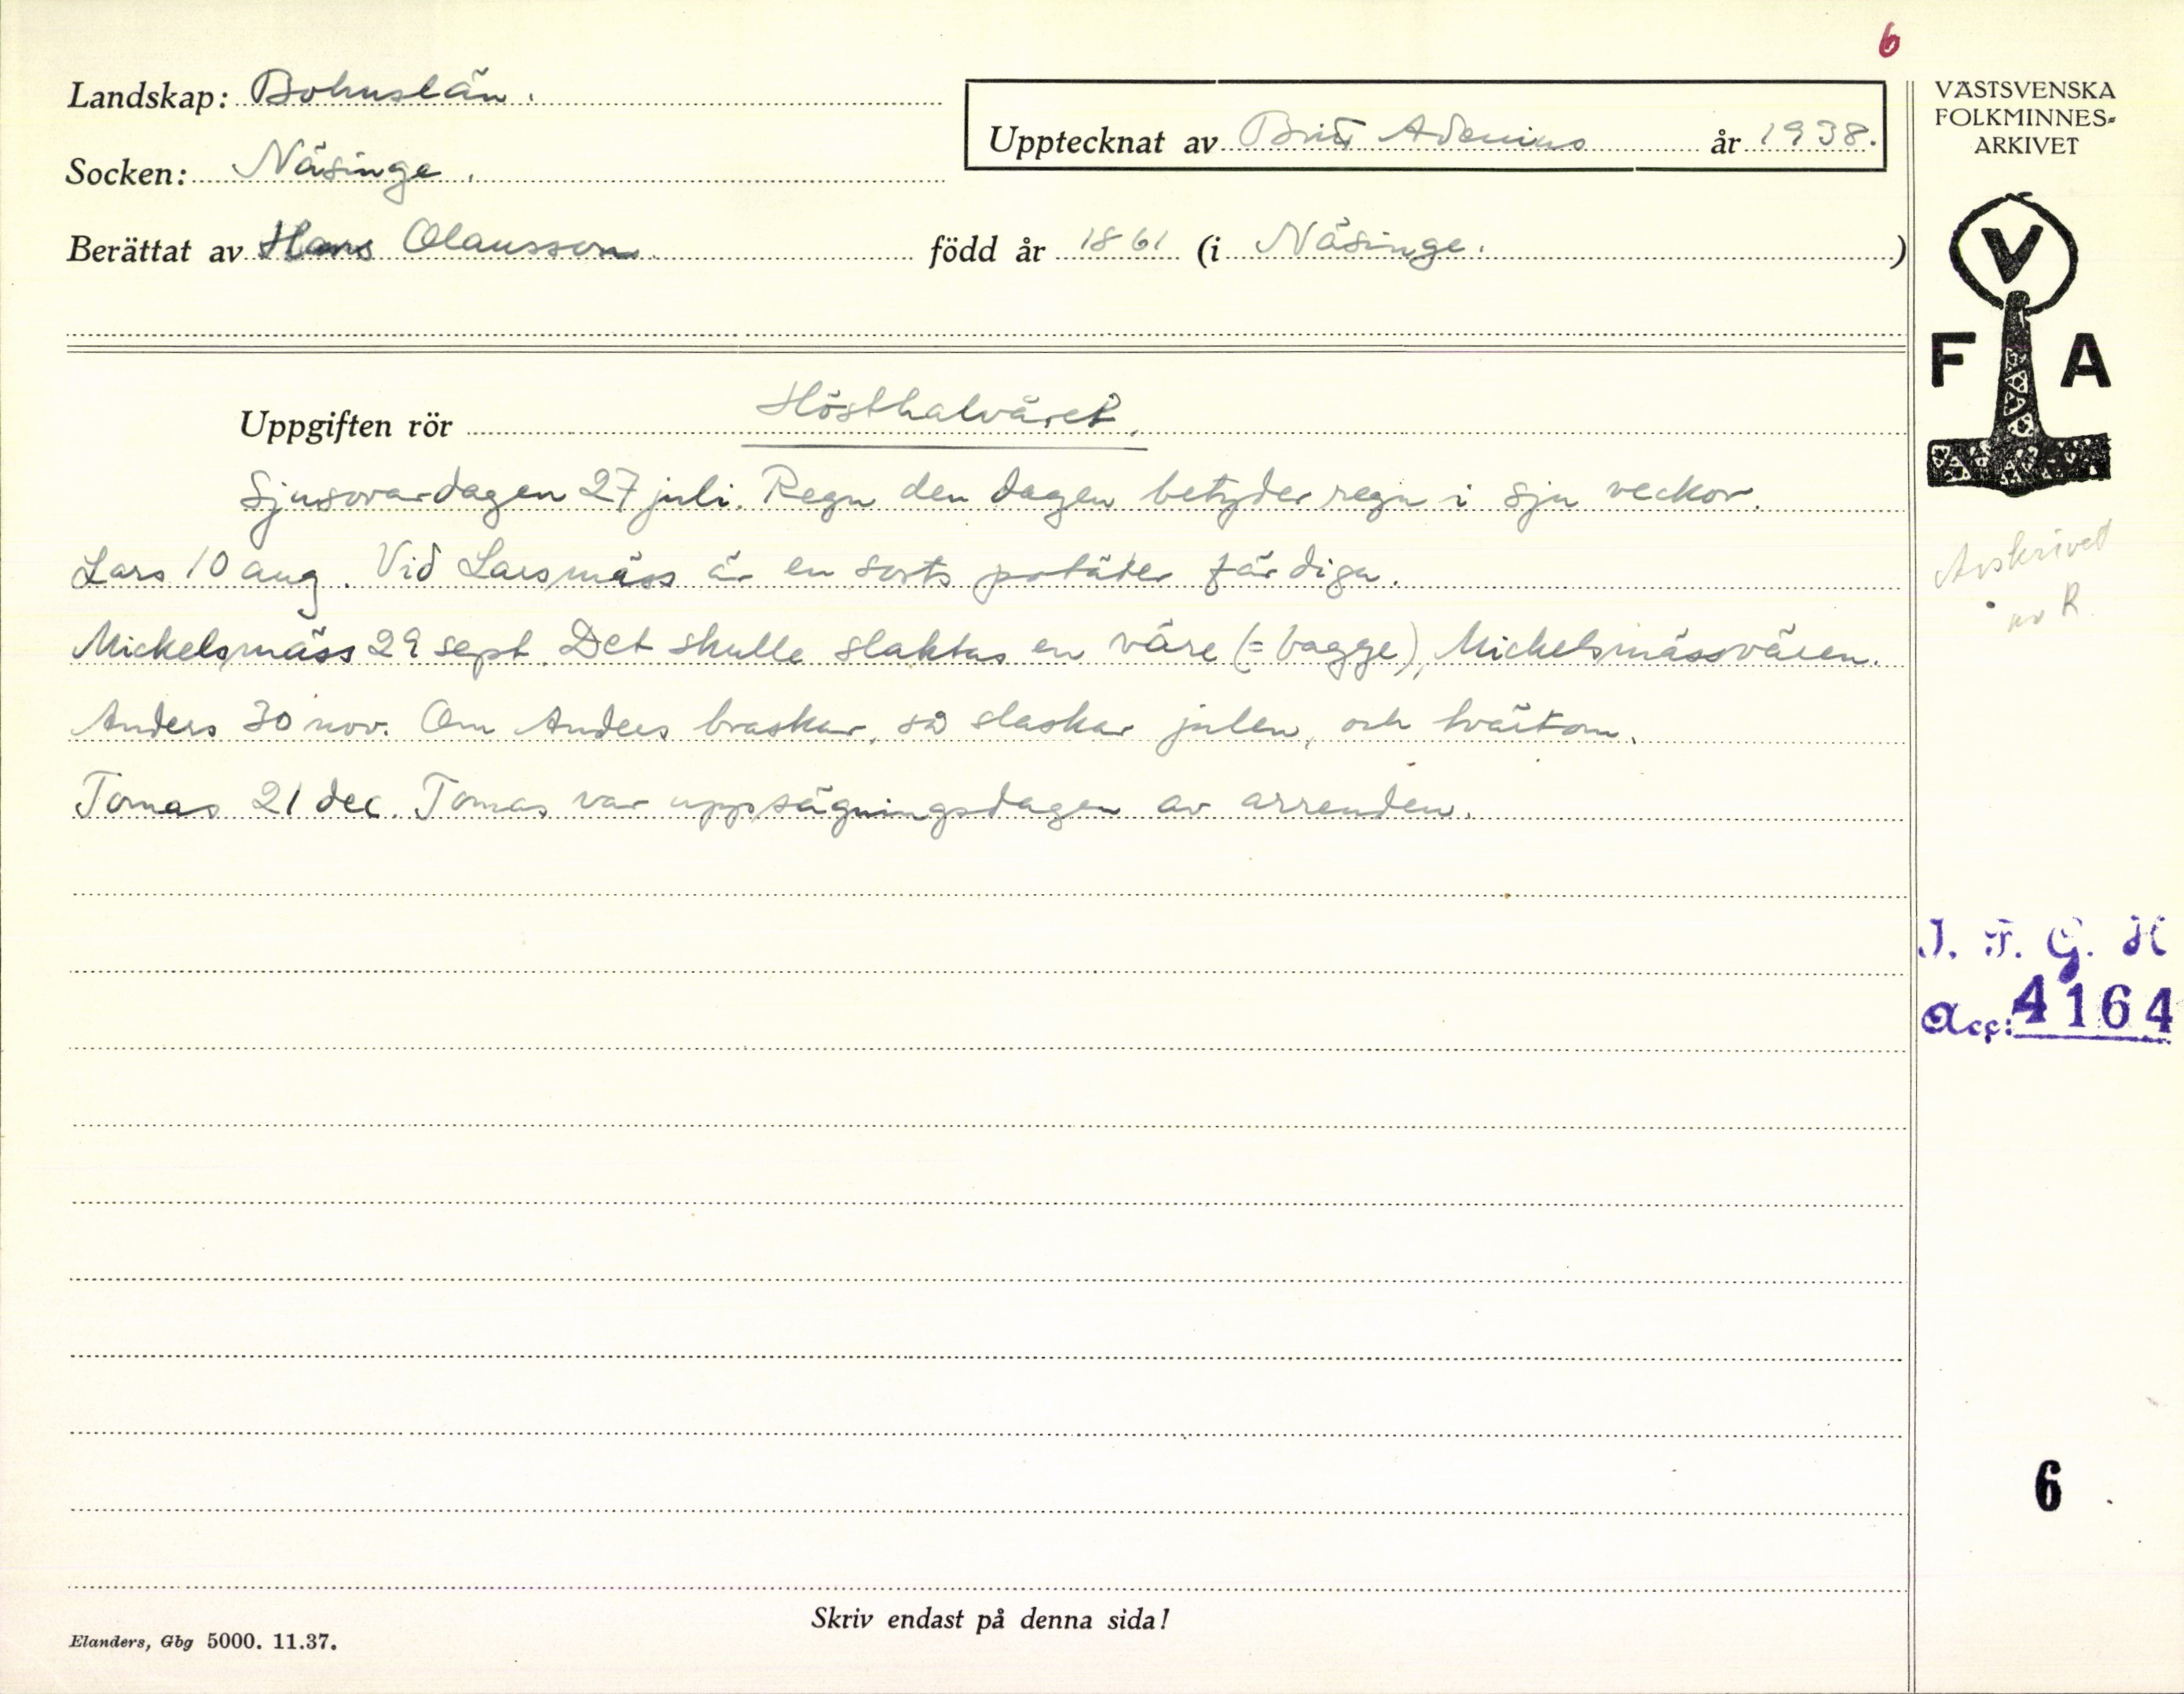 6
Landskap: Bohuslän.
Upptecknat av Brita Adenius år 1938.
Socken: Näsinge.
Berättat av Hans Olausson född år 1861 (i Näsinge.)
VÄSTSVENSKA
FOLKMINNES-
ARKIVET
V
F A
Uppgiften rör Hösthalvåret.
Sjusovardagen 27 juli. Regn den dagen betyder regn i sju veckor.
Lars 10 aug. Vid Larsmäss är en sorts potäter färdiga.
Mickelsmäss 29 sept. Det skulle slaktas en väre (= bagge), Mickelsmässvären.
Anders 30 nov. Om Anders braskar, så slaskar julen, och tvärtom.
Tomas 21 dec. Tomas var uppsägningsdagen av arrenden.
Avskrivet
av R.
I. F. G. H
Acc: 4164
6
Skriv endast på denna sida!
Elanders, Gbg 5000. 11.37.